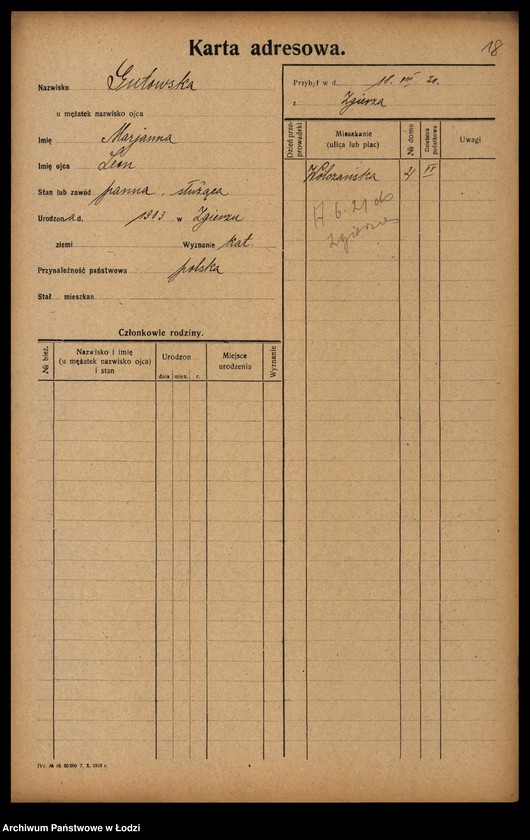 Karta adresowa.
18
Nazwisko Gutowska
u mężatek nazwisko ojca
Imię Marjanna
Imię ojca Leon
Stan lub zawód panna, służąca
Urodzona d. 1903 w Zgierzu
ziemi Wyznanie kat.
Przynależność państwowa polska
Stał mieszkan.
Przybył w d. VIII 20.
z Zgierza
Dzień przeprowadzki
Mieszkanie
(ulica lub plac)
№ domu
Dzielnica podatkowa
Uwagi
Wólczańska
17.6.21 do
Zgierza
Członkowie rodziny.
№ bież.
Nazwisko i imię
(u mężatek nazwisko ojca)
i stan
Urodzon
dnia mies. r.
Miejsce
urodzenia
Wyznanie
7. X. 1919 r.
Archiwum Państwowe w Łodzi